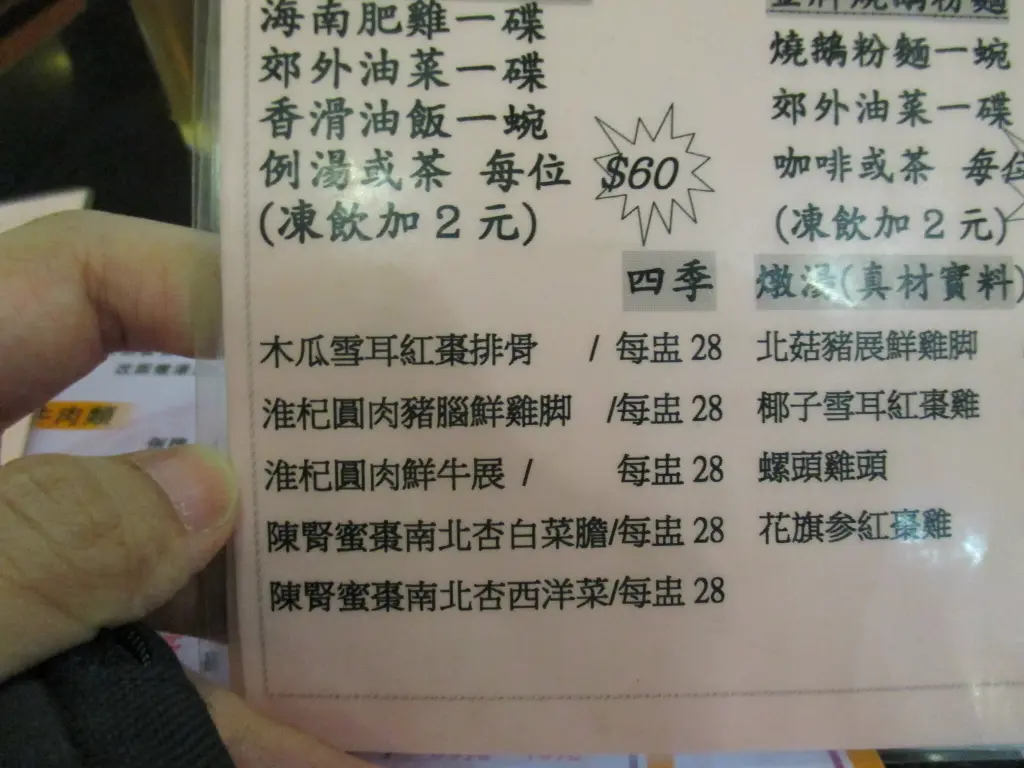 海南肥雞一碟
郊外油菜一碟
香滑油飯一蜿
例湯或茶 每位
(凍飲加2元)
$60
燒鵝粉麵一蜿
郊外油菜一碟
咖啡或茶 每位
(凍飲加2元)
四季 燉湯(真材實料)
木瓜雪耳紅棗排骨 / 每盅 28
淮杞圓肉豬腦鮮雞脚 /每盅 28
淮杞圓肉鮮牛展 / 每盅 28
陳腎蜜棗南北杏白菜膽/每盅 28
陳腎蜜棗南北杏西洋菜/每盅 28
北菇豬展鮮雞脚
椰子雪耳紅棗雞
螺頭雞頭
花旗参紅棗雞
牛肉類